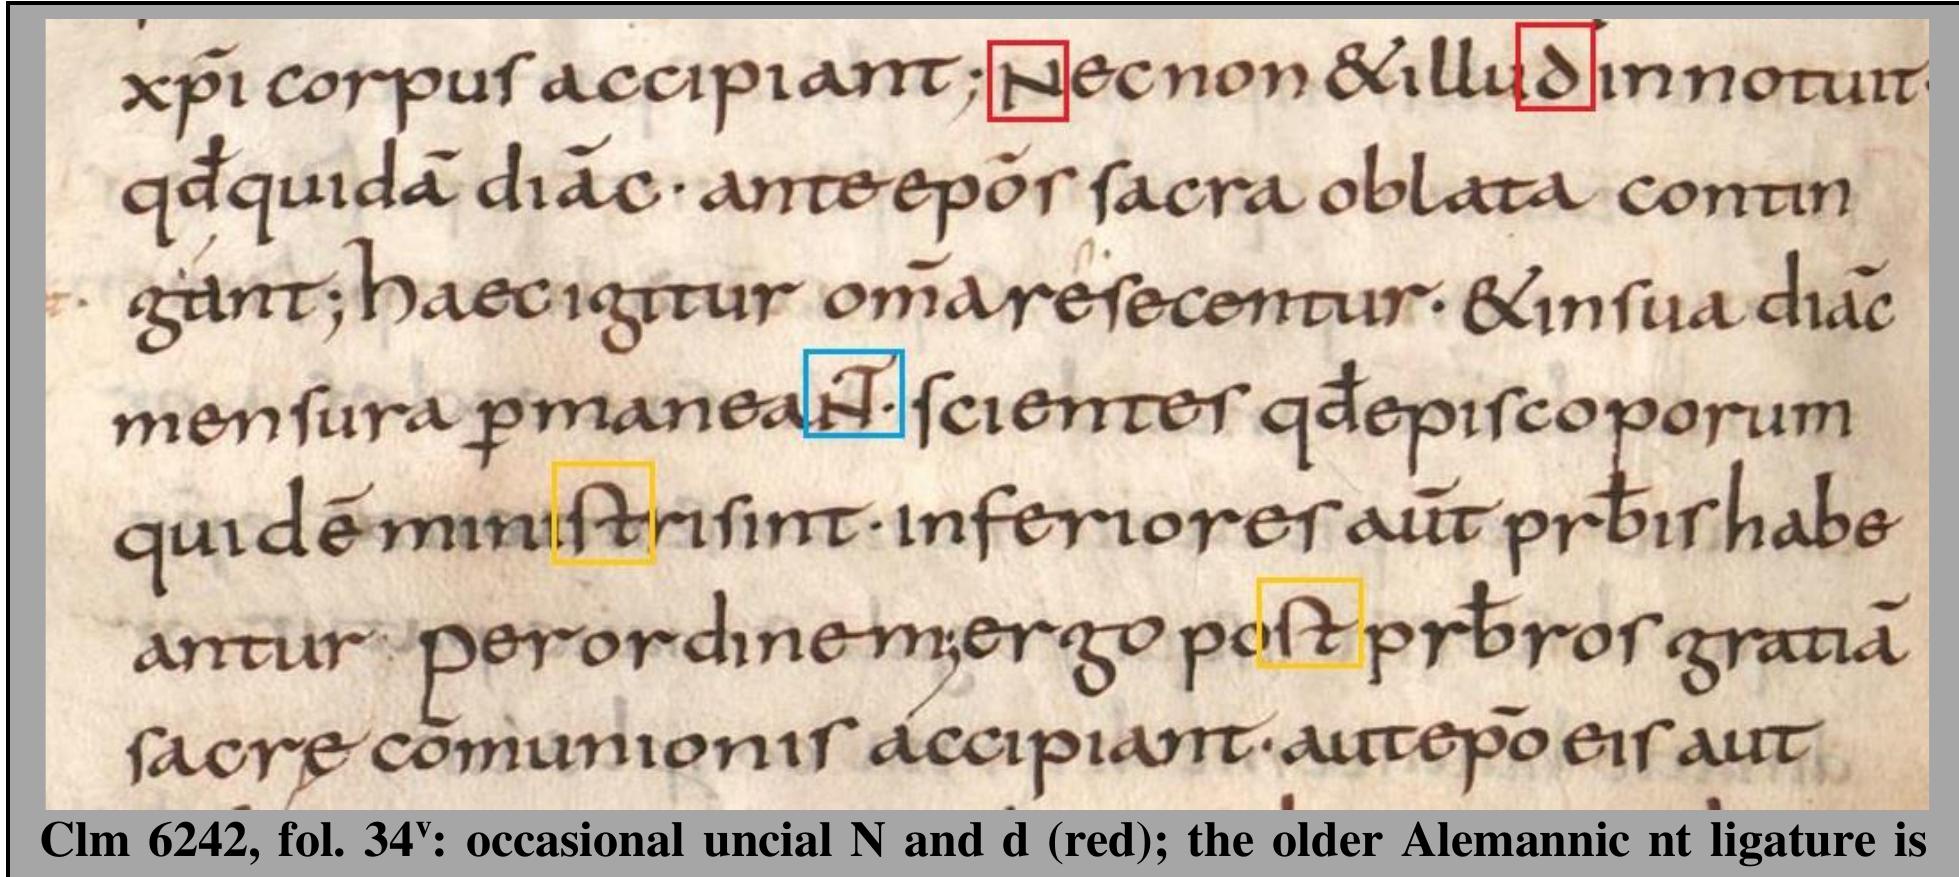 xp̄i corpus accipiant; Nec non & illud innotuit·
qđ quidā diāc· ante ep̄os sacra oblata contin
gant; haec igitur om̄a resecentur· & in sua diāc
mensura p̱maneaNT· scientes qđ episcoporum
quidē ministri sint· inferiores aūt prƀis habe
antur per ordinem; ergo post prƀros gratiā
sacrę cōmunionis accipiant· aut ep̄o eis aut
Clm 6242, fol. 34ᵛ: occasional uncial N and d (red); the older Alemannic nt ligature is